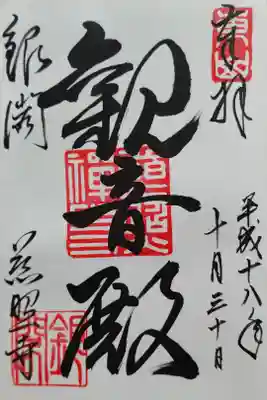 奉拝
平成十八年
十月三十日
観音殿
銀閣
慈照寺